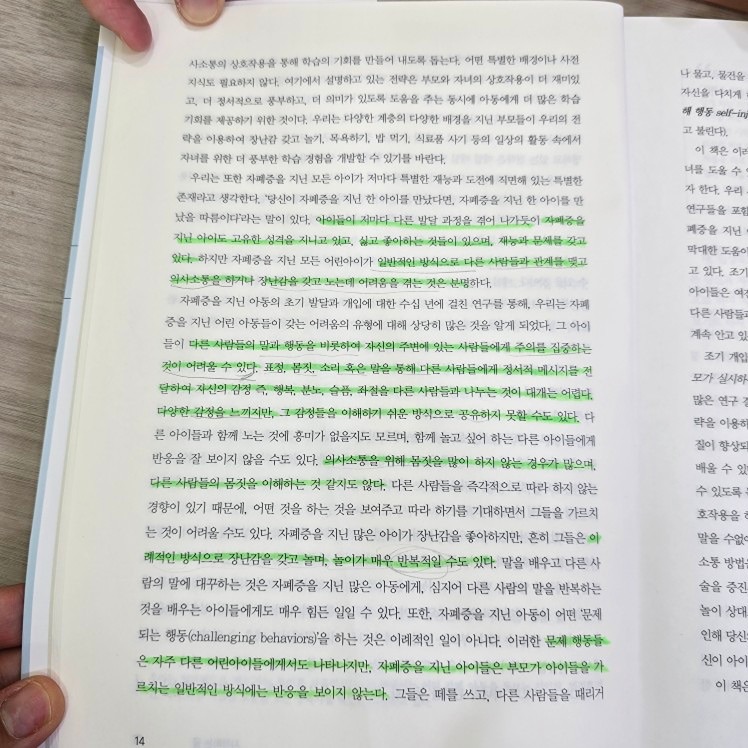 사소통의 상호작용을 통해 학습의 기회를 만들어 내도록 돕는다. 어떤 특별한 배경이나 사전
지식도 필요하지 않다. 여기에서 설명하고 있는 전략은 부모와 자녀의 상호작용이 더 재미있
고, 더 정서적으로 풍부하고, 더 의미가 있도록 도움을 주는 동시에 아동에게 더 많은 학습
기회를 제공하기 위한 것이다. 우리는 다양한 계층의 다양한 배경을 지닌 부모들이 우리의 전
략을 이용하여 장난감 갖고 놀기, 목욕하기, 밥 먹기, 식료품 사기 등의 일상의 활동 속에서
자녀를 위한 더 풍부한 학습 경험을 개발할 수 있기를 바란다.
우리는 또한 자폐증을 지닌 모든 아이가 저마다 특별한 재능과 도전에 직면해 있는 특별한
존재라고 생각한다. '당신이 자폐증을 지닌 한 아이를 만났다면, 자폐증을 지닌 한 아이를 만
났을 따름이다'라는 말이 있다. 아이들이 저마다 다른 발달 과정을 겪어 나가듯이 자폐증을
지닌 아이도 고유한 성격을 지니고 있고, 싫고 좋아하는 것들이 있으며, 재능과 문제를 갖고
있다. 하지만 자폐증을 지닌 모든 어린아이가 일반적인 방식으로 다른 사람들과 관계를 맺고
의사소통을 하거나 장난감을 갖고 노는데 어려움을 겪는 것은 분명하다.
자폐증을 지닌 아동의 초기 발달과 개입에 대한 수십 년에 걸친 연구를 통해, 우리는 자폐
증을 지닌 어린 아동들이 갖는 어려움의 유형에 대해 상당히 많은 것을 알게 되었다. 그 아이
들이 다른 사람들의 말과 행동을 비롯하여 자신의 주변에 있는 사람들에게 주의를 집중하는
것이 어려울 수 있다. 표정, 몸짓, 소리 혹은 말을 통해 다른 사람들에게 정서적 메시지를 전
달하여 자신의 감정 즉, 행복, 분노, 슬픔, 좌절을 다른 사람들과 나누는 것이 대개는 어렵다.
다양한 감정을 느끼지만, 그 감정들을 이해하기 쉬운 방식으로 공유하지 못할 수도 있다. 다
른 아이들과 함께 노는 것에 흥미가 없을지도 모르며, 함께 놀고 싶어 하는 다른 아이들에게
반응을 잘 보이지 않을 수도 있다. 의사소통을 위해 몸짓을 많이 하지 않는 경우가 많으며,
다른 사람들의 몸짓을 이해하는 것 같지도 않다. 다른 사람들을 즉각적으로 따라 하지 않는
경향이 있기 때문에, 어떤 것을 하는 것을 보여주고 따라 하기를 기대하면서 그들을 가르치
는 것이 어려울 수도 있다. 자폐증을 지닌 많은 아이가 장난감을 좋아하지만, 흔히 그들은 이
례적인 방식으로 장난감을 갖고 놀며, 놀이가 매우 반복적일 수도 있다. 말을 배우고 다른 사
람의 말에 대꾸하는 것은 자폐증을 지닌 많은 아동에게, 심지어 다른 사람의 말을 반복하는
것을 배우는 아이들에게도 매우 힘든 일일 수 있다. 또한, 자폐증을 지닌 아동이 어떤 '문제
되는 행동(challenging behaviors)'을 하는 것은 이례적인 일이 아니다. 이러한 문제 행동들
은 자주 다른 어린아이들에게서도 나타나지만, 자폐증을 지닌 아이들은 부모가 아이들을 가
르치는 일반적인 방식에는 반응을 보이지 않는다. 그들은 떼를 쓰고, 다른 사람들을 때리거
14
나 물고, 물건을
자신을 다치게
해 행동 self-inj
고 불린다).
이 책은 이러
녀를 도울 수 있
자 한다. 우리
연구들을 포함
폐증을 지닌
막대한 도움이
고 있다. 조기
아이들은 여
다른 사람들과
계속 안고 있
조기 개입
모가 실시하
많은 연구 결
략을 이용하
질이 향상되
배울 수 있
수 있도록
호작용을 하
말을 수없이
소통 방법을
술을 증진
놀이 상대
인해 당신
신이 아이
이 책은